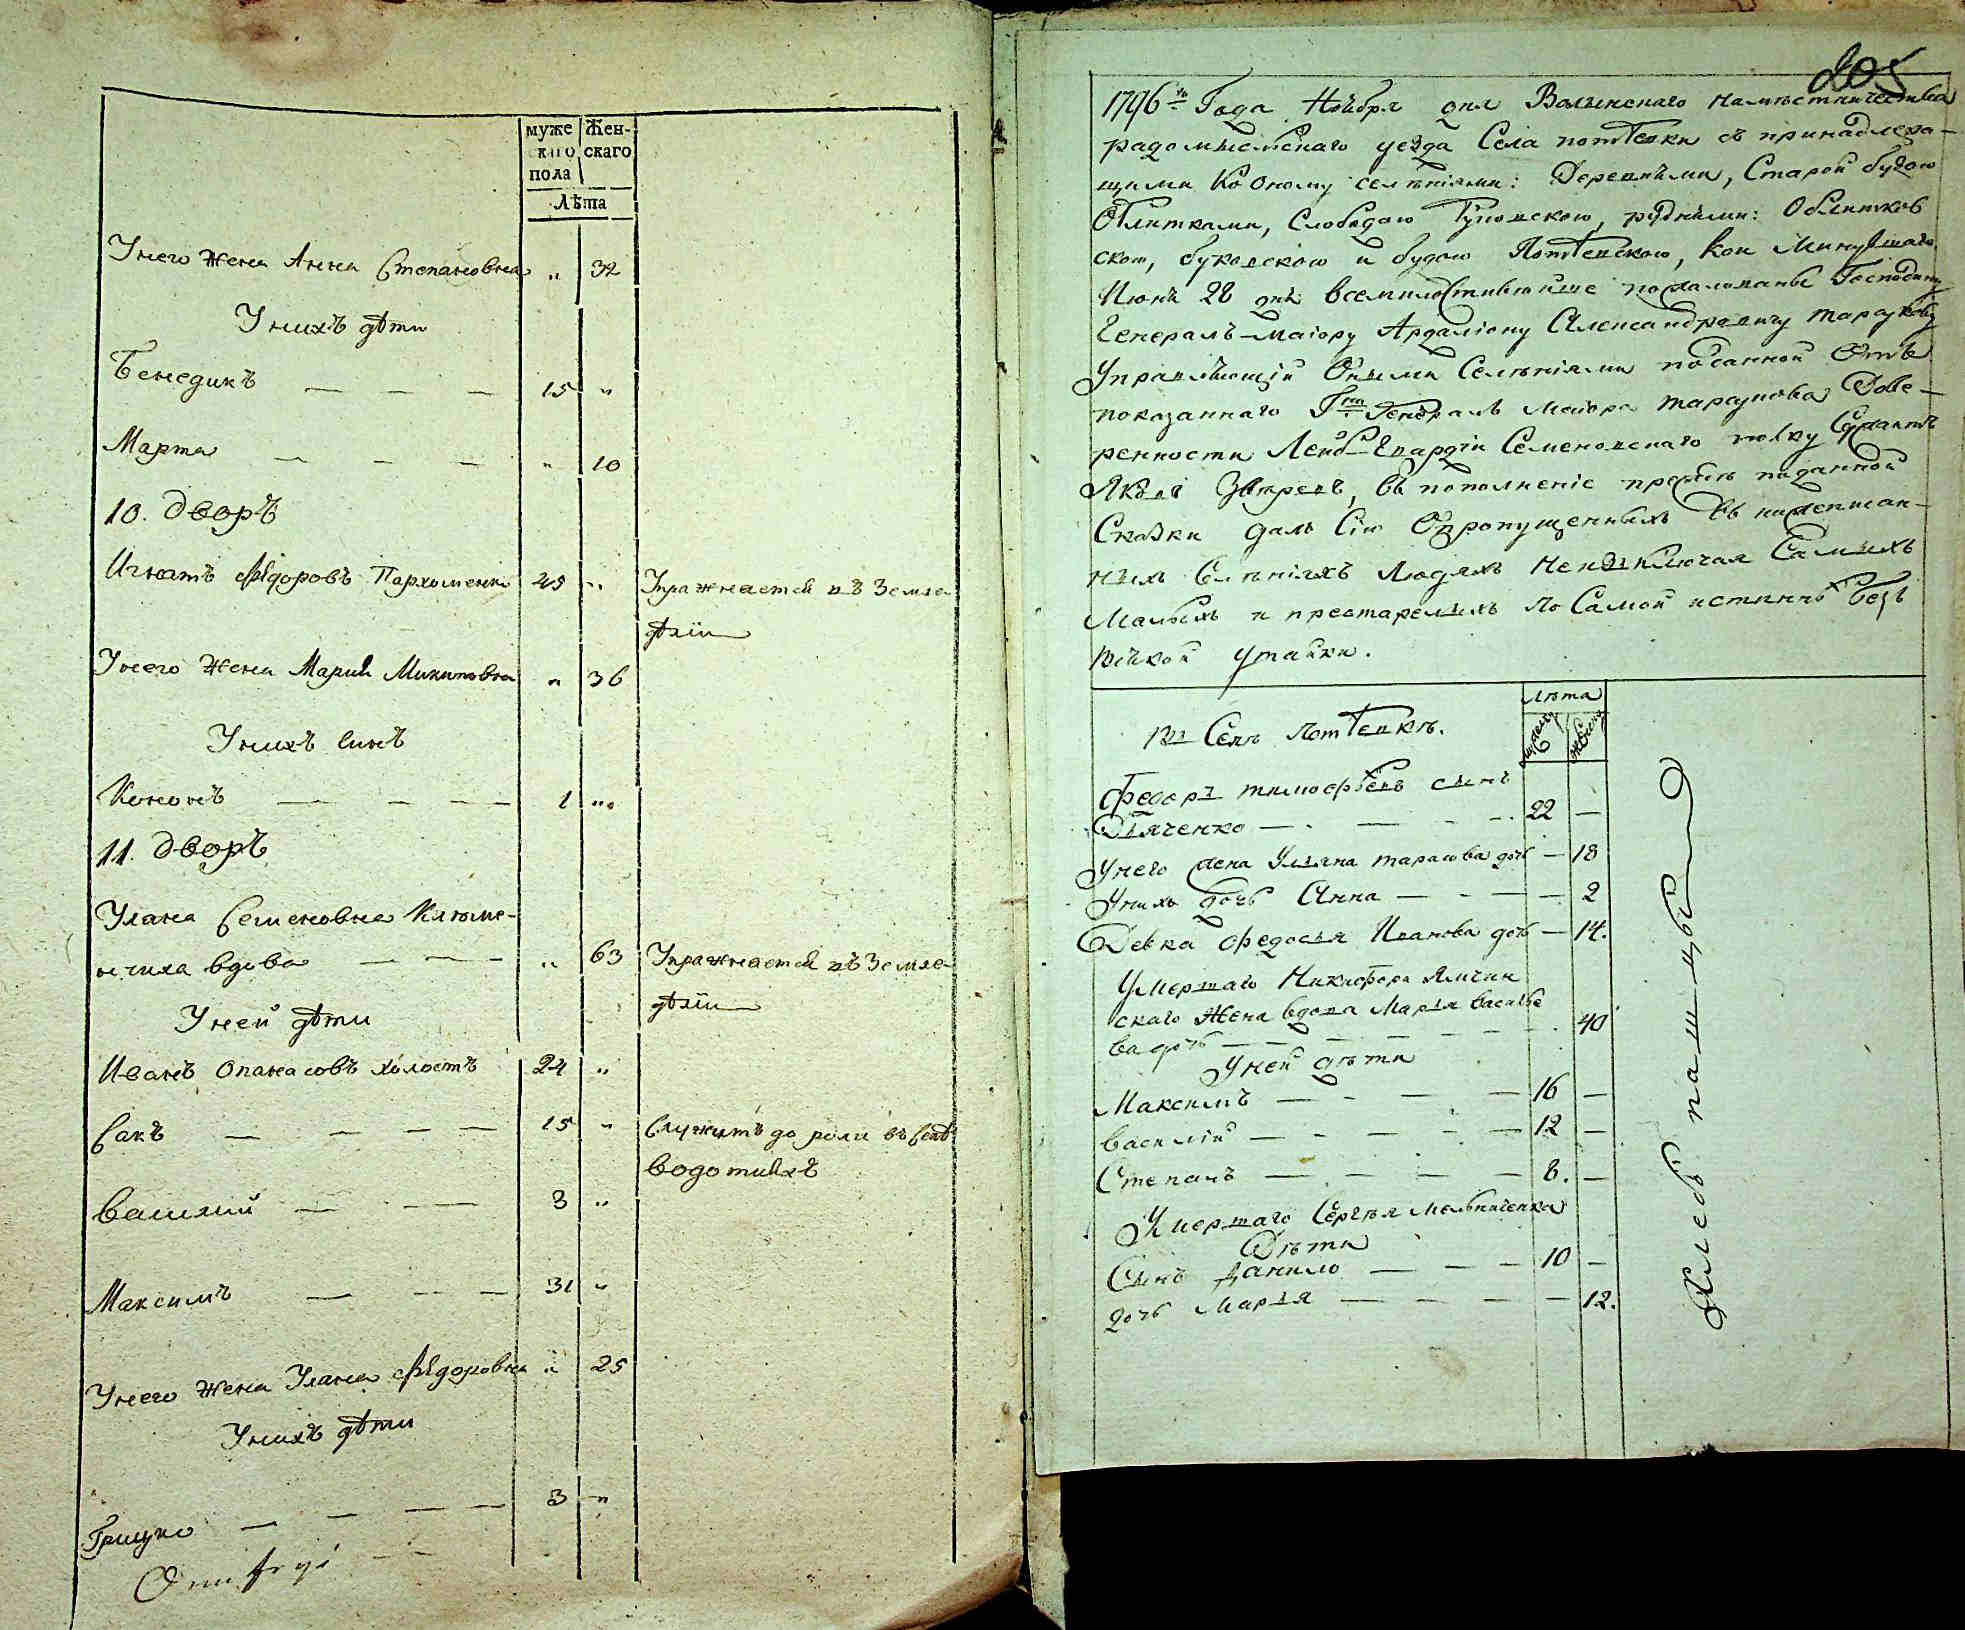 муже
ского
пола
Жен-
скаго
Лѣта
Унего Жена Анна Степановна „ 32
Унихъ дѣти
Бенедикъ — — — 15 „
Марта — — — „ 10
10. дворъ
Игнатъ Фѣдоровъ Пархоменко 45 „ Упражнается въ Земле-
дѣлїи
Унего Жена Мария Микитовна „ 36
Унихъ Синъ
Кононъ — — — 1 „
11. дворъ
Улана Семеновна Климе-
нчиха вдова — — — „ 63 Упражнается въ Земле-
дѣлїи
Уней дѣти
Иванъ Опанасовъ холостъ 24 „
Сакъ — — — — 15 „ Служитъ до роли въ Селѣ
водотияхъ
Василий — — — 3 „
Максимъ — — — 31 „
Унего Жена Улана Фѣдоровна „ 25
Унихъ дѣти
Грицко — — — 3 „
205
1796го Года Ноября дня Волынскаго намѣстничества
радомысльскаго уезда Села потѣевки съ принадлежа-
щими Кооному селѣніями: Деревнями, Старой будою
Облитками, Слободою рудними: Облитков
скою, буковскою и будою Потѣевскою, кои Минувшаго
Июня 28 дня всемилостивейше пожалованы Господину
Генералъ-маіору Ардаліону Александровичу торсукову
Управляющій Оными Селѣніями поданной Отъ
показаннаго Гна Генералъ маіора торсукова Дове-
ренности Лейбъ-Гвардіи Семеновскаго полку Сержантъ
Яковъ Зверевъ, въ пополненіе преждѣ поданной
Сказки далъ Сію Опропущенныхъ въ нижеписан-
ныхъ Селѣніяхъ Людяхъ Неизъключая Самыхъ
Малыхъ и престарелыхъ по Самой истиннѣ безъ
всякой утайки.
лѣта
Въ Селѣ потѣевкѣ.
Федоръ тимофѣевъ сынъ
Дьяченко — — — 22 —
Унего жена Ульяна тарасова дочь — 18
Унихъ дочь Анна — — — 2
Девка федосья Иванова дочь — 14.
Умершаго Никифора Ямчин
скаго Жена вдова Марья василье
ва дочь — — — 40
Уней дѣти
Максимъ — — — 16 —
василій — — — 12 —
Степанъ — — — 8. —
Умершаго Сергѣя мельниченка
Дѣти
Сынъ Данило — — — 10 —
дочь Марья — — — 12.
Хлебопашцы